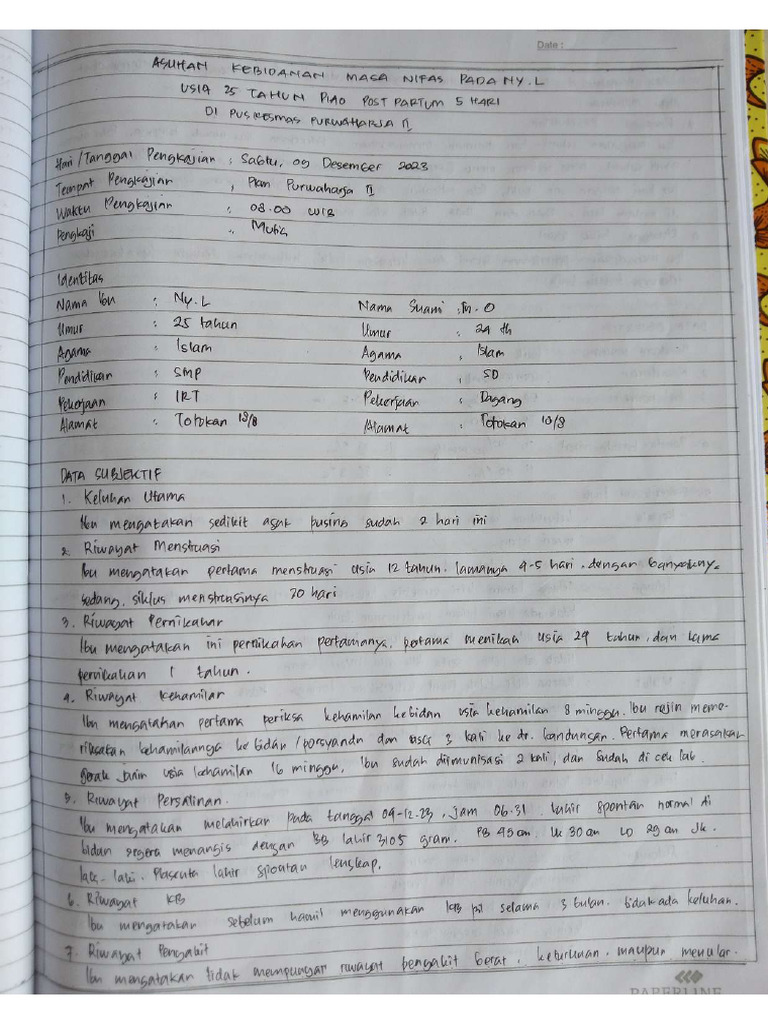 Date :
ASUHAN KEBIDANAN MASA NIFAS PADA NY. L
USIA 25 TAHUN P1A0 POST PARTUM 5 HARI
DI PUSKESMAS PURWAHARJA II
Hari / Tanggal Pengkajian : Sabtu, 09 Desember 2023
Tempat Pengkajian : Pkm Purwaharja II
Waktu Pengkajian : 08.00 WIB
Pengkaji : Mutia
Identitas
Nama Ibu : Ny. L Nama Suami : Tn. O
Umur : 25 tahun Umur : 29 th
Agama : Islam Agama : Islam
Pendidikan : SMP Pendidikan : SD
Pekerjaan : IRT Pekerjaan : Dagang
Alamat : Totokan 18/8 Alamat : Totokan 18/8
DATA SUBJEKTIF
1. Keluhan Utama
Ibu mengatakan sedikit agak pusing sudah 2 hari ini
2. Riwayat Menstruasi
Ibu mengatakan pertama menstruasi usia 12 tahun. lamanya 4-5 hari. dengan banyaknya
sedang. siklus menstruasinya 30 hari
3. Riwayat Pernikahan
Ibu mengatakan ini pernikahan pertamanya. pertama menikah usia 24 tahun, dan lama
pernikahan 1 tahun.
4. Riwayat Kehamilan
Ibu mengatakan pertama periksa kehamilan kebidan usia kehamilan 8 minggu. Ibu rajin meme-
riksakan kehamilannya ke bidan / posyandu dan USG 3 kali ke dr. kandungan. Pertama merasakan
gerak janin usia kehamilan 16 minggu, Ibu sudah diimunisasi 2 kali, dan sudah di cek lab.
5. Riwayat Persalinan.
Ibu mengatakan melahirkan pada tanggal 04-12-23, jam 06.31. lahir spontan normal di
bidan segera menangis dengan BB lahir 3105 gram. PB 45 cm. LK 30 cm LD 29 cm Jk.
laki-laki. Plasenta lahir spontan lengkap.
6. Riwayat KB
Ibu mengatakan sebelum hamil menggunakan KB pil selama 3 bulan. tidak ada keluhan.
7. Riwayat Penyakit
Ibu mengatakan tidak mempunyai riwayat penyakit berat, keturunan. maupun menular.
PAPERLINE